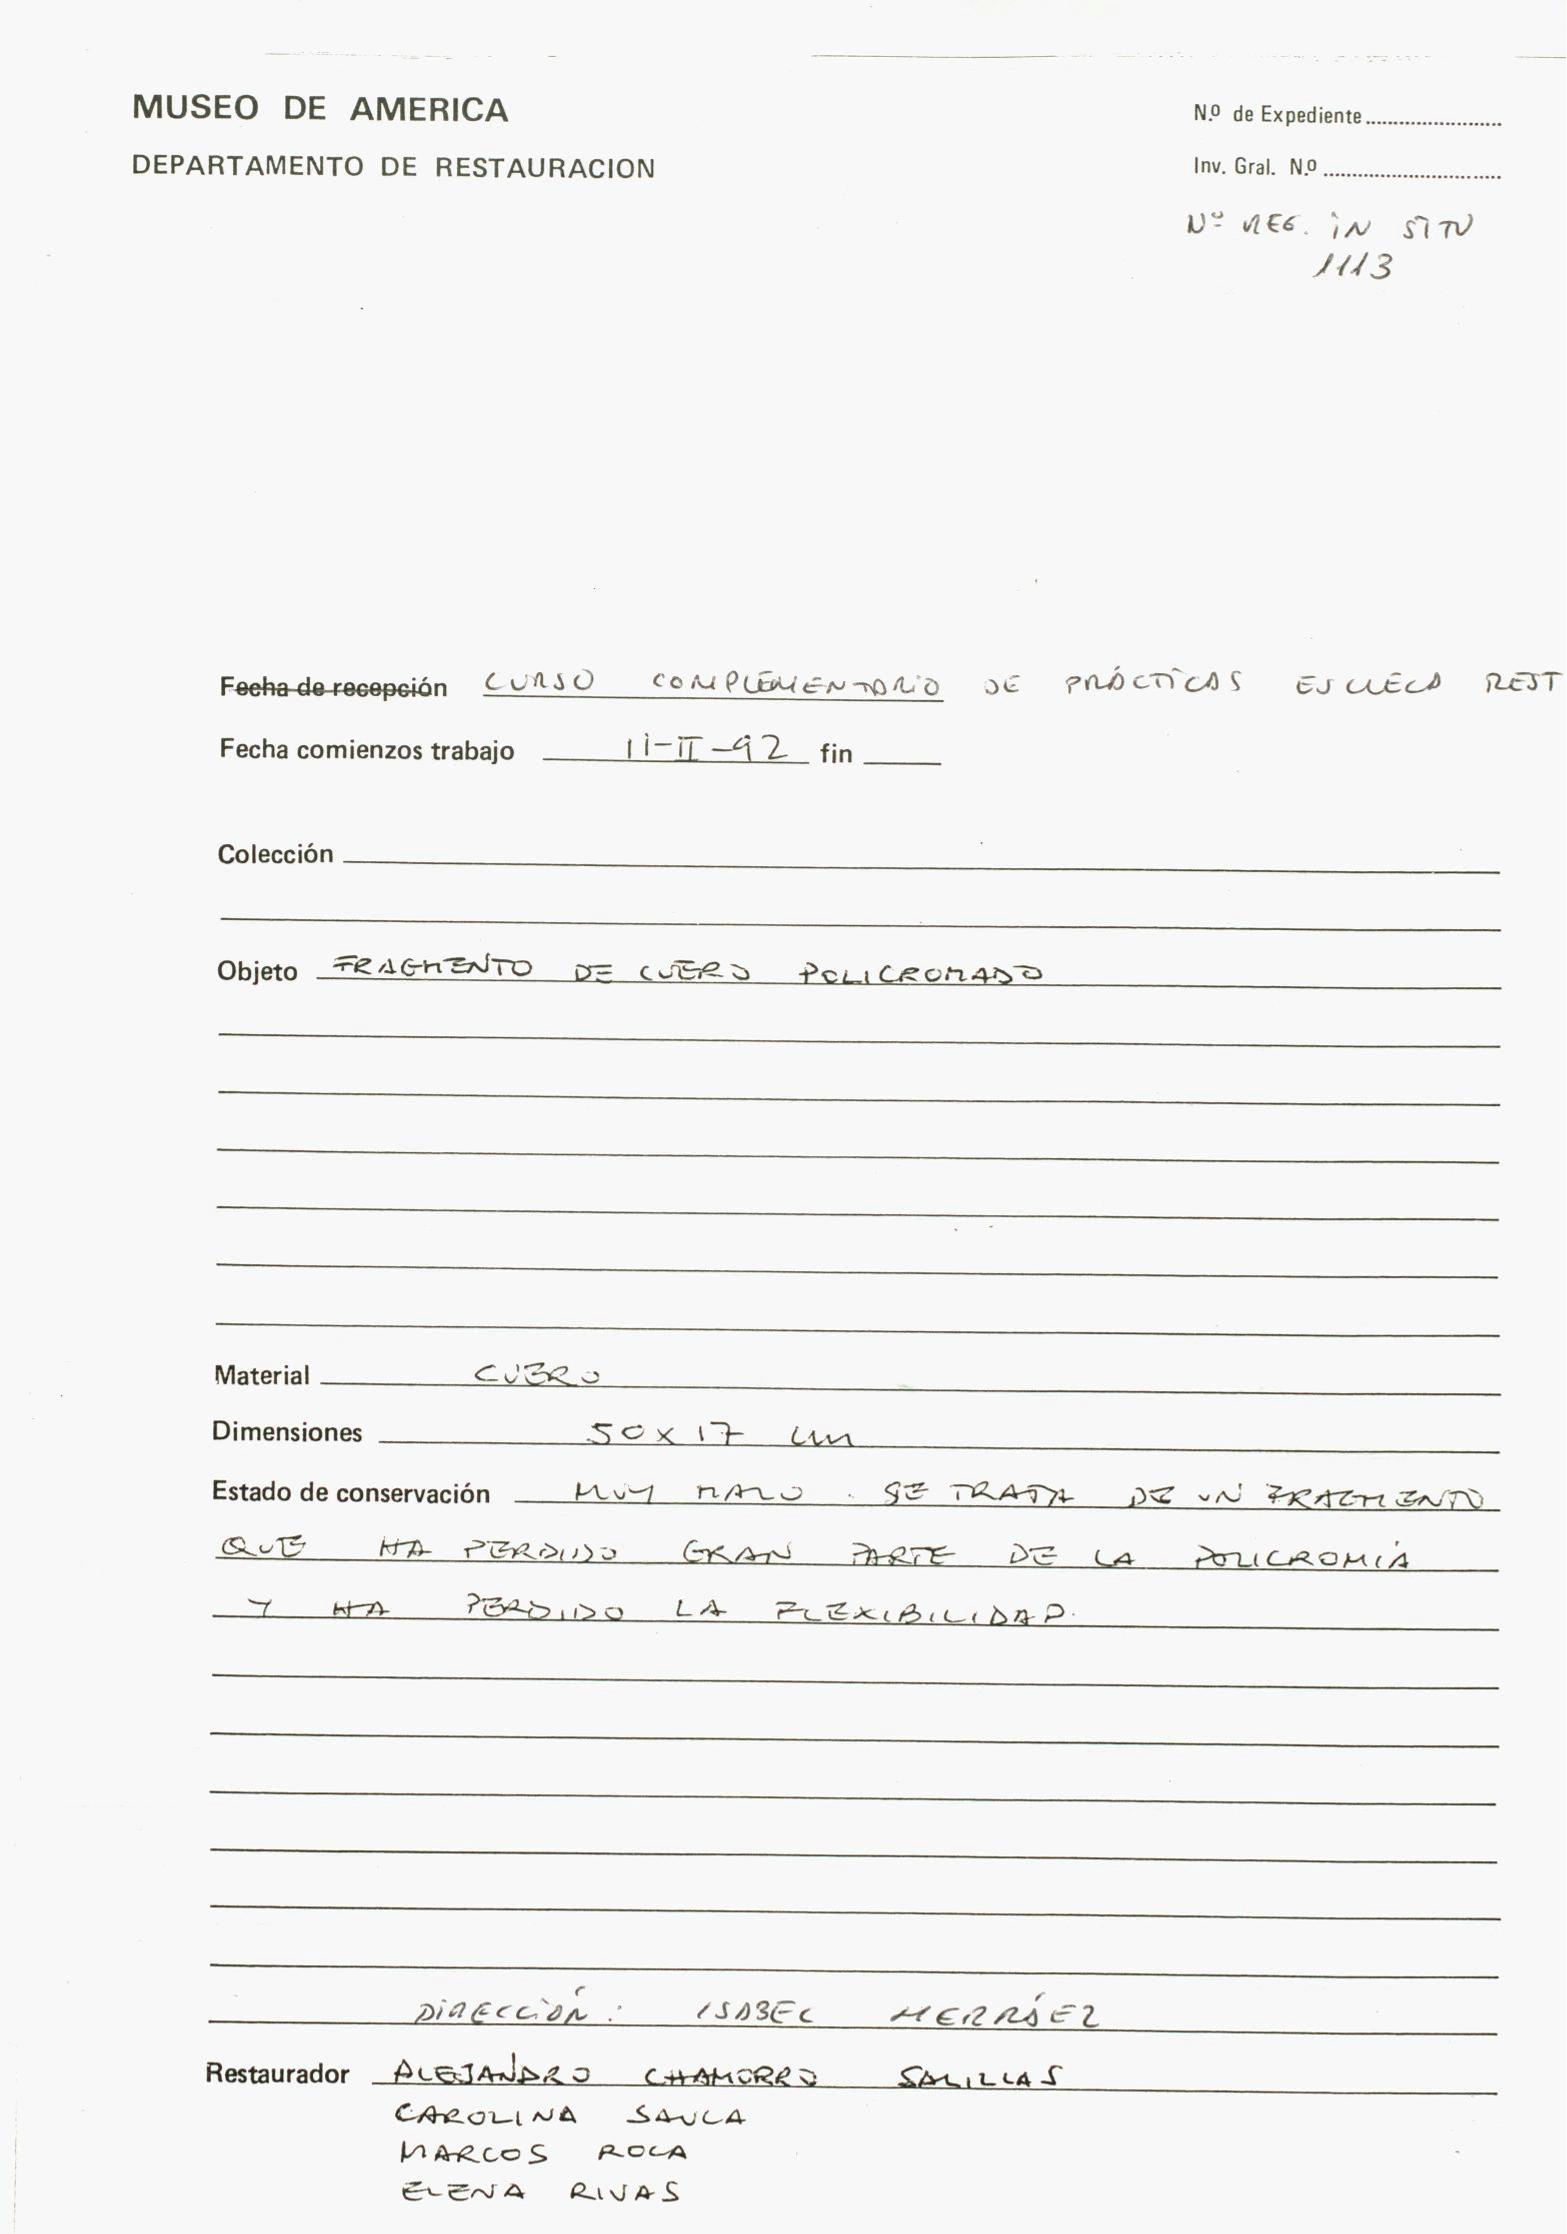 MUSEO DE AMERICA
DEPARTAMENTO DE RESTAURACION
N.º de Expediente
Inv. Gral. N.º
Nº REG. IN SITU
1113
Fecha de recepción CURSO COMPLEMENTARIO DE PRÁCTICAS ESCUELA REST
Fecha comienzos trabajo 11-II-92 fin
Colección
Objeto FRAGMENTO DE CUERO POLICROMADO
Material CUERO
Dimensiones 50x17 cm
Estado de conservación MUY MALO. SE TRATA DE UN FRAGMENTO
QUE HA PERDIDO GRAN PARTE DE LA POLICROMÍA
Y HA PERDIDO LA FLEXIBILIDAD.
DIRECCIÓN: ISABEL HERRÁEZ
Restaurador ALEJANDRO CHAMORRO SALILLAS
CAROLINA
MARCOS
ELENA RIVAS